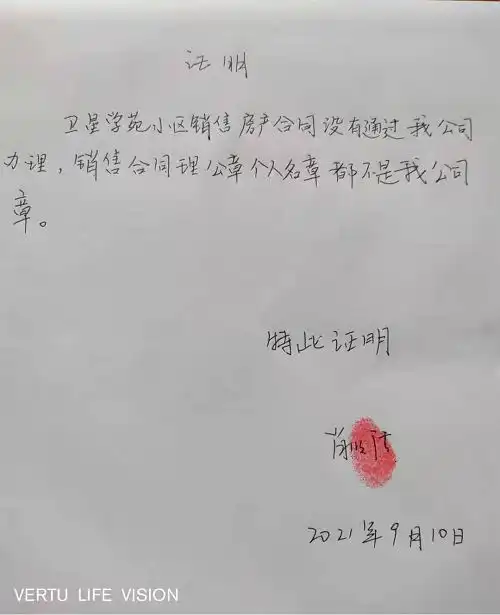 证明
卫星学苑小区销售房产合同没有通过我公司
办理，销售合同理公章个人名章都不是我公司
章。
特此证明
2021年9月10日
VERTU LIFE VISION